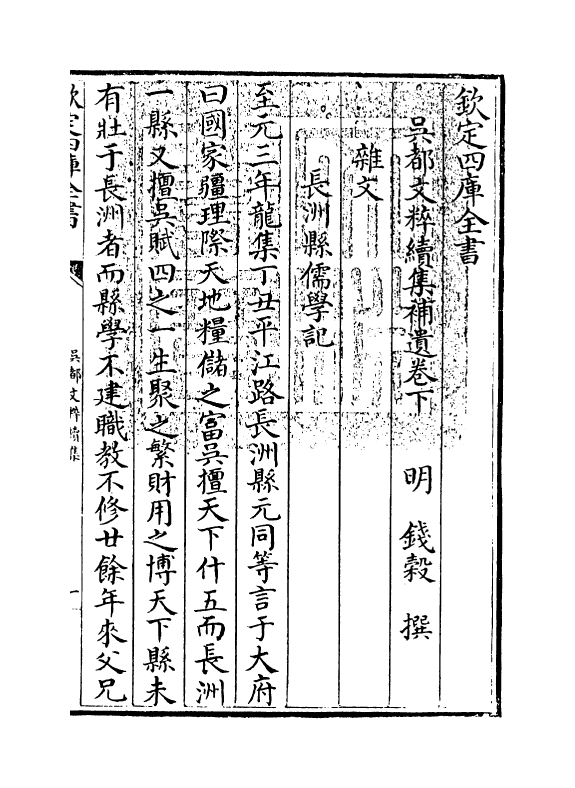 欽定四庫全書
吳都文粹續集補遺卷下　明　錢榖　撰
雜文
長洲縣儒學記
至元三年龍集丁丑平江路長洲縣元同等言于大府
曰國家疆理際天地糧儲之富吳擅天下什五而長洲
一縣又擅吳賦四之一生聚之繁財用之博天下縣未
有壯于長洲者而縣學不建職教不修廿餘年來父兄
欽定四庫全書
吳都文粹續集
一